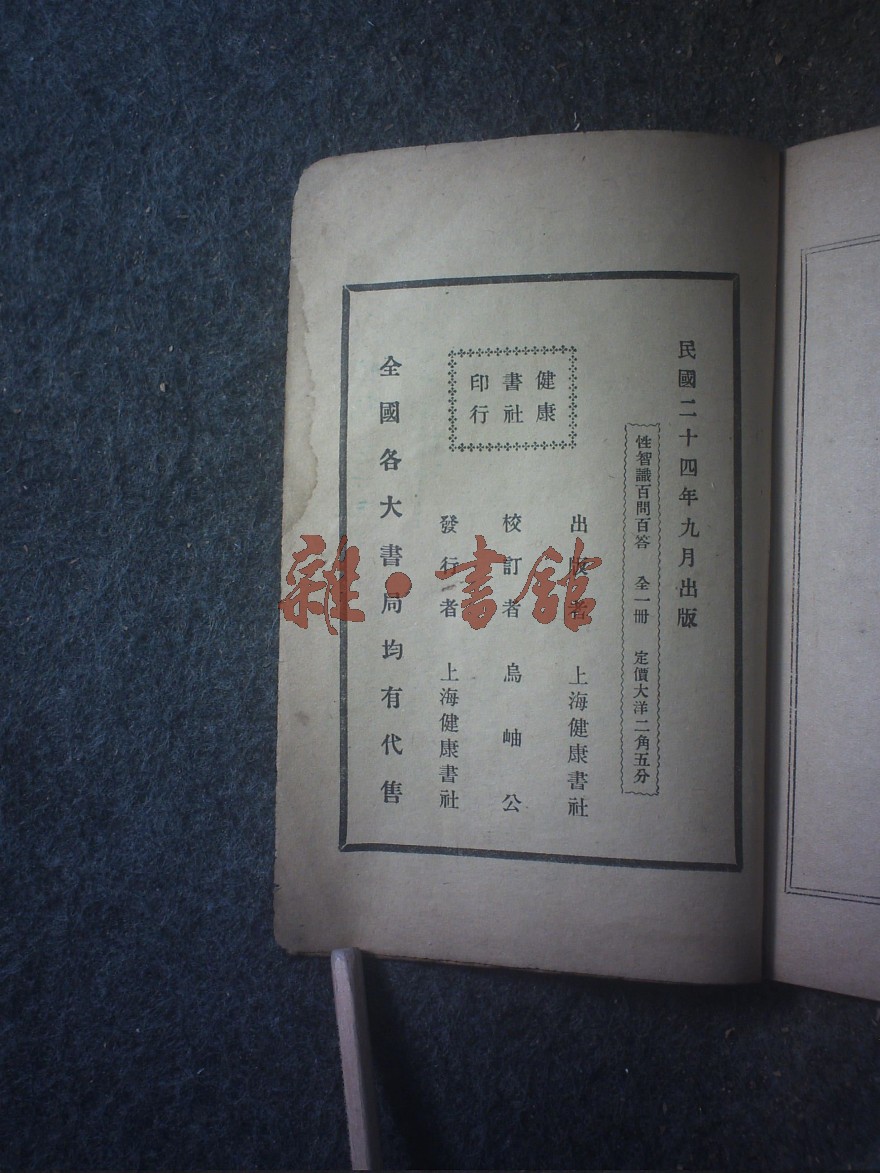 民國二十四年九月出版
性智識百問百答 全一冊 定價大洋二角五分
出版者 上海健康書社
校訂者 烏岫公
發行者 上海健康書社
健康
書社
印行
全國各大書局均有代售
雜·書館